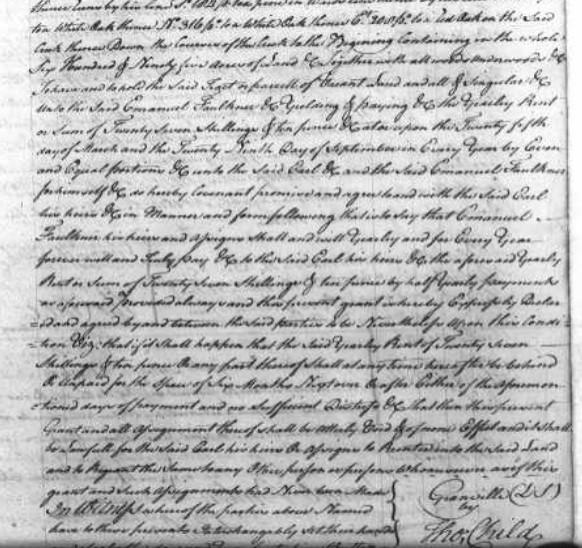 to a White Oak thence N. 36 to a White Oak thence to a Red Oak on the Said
Creek thence Down the Courses of the Creek to the Begining Containing in the whole
Six Hundred & Ninety five Acres of Land &c Together with all woods Underwoods &c
To have and to hold the Said Tract or parcell of Vacant Land and all & Singular &c
Unto the Said Emanuel Faulkner &c Yielding & paying &c the Yearly Rent
or Sum of Twenty Seven Shillings & ten pence &c at or upon the Twenty fifth
day of March and the Twenty Ninth Day of September in Every Year by Even
and Equal portions &c unto the Said Earl &c and the Said Emanuel Faulkner
for himself &c do hereby Covenant promise and agree to and with the Said Earl
his heirs &c in Manner and form following that is to Say that Emanuel
Faulkner his heirs and Assigns Shall and will Yearly and for Every Year
forever well and Truly pay &c to the Said Earl his heirs &c the aforesaid Yearly
Rent or Sum of Twenty Seven Shillings & ten pence by half Yearly payments
as aforesaid Provided always and this present grant is hereby Expressly Declar
=ed and agreed by and between the said parties to be Nevertheless Upon this Condi=
=tion Viz: that if it Shall happen that the Said Yearly Rent of Twenty Seven
Shillings & ten pence Or any part thereof Shall at any time hereafter be behind
& Unpaid for the Space of Six Months Next over Or after Either of the Aforemen=
=tioned days of payment and no Sufficient Distress &c that then this present
Grant and all Assignment thereof shall be Utterly Void & of none Effect and it Shall
be Lawfull for the Said Earl his heirs Or Assigns to Reenter into the Said Land
and to Regrant the Same to any Other person or persons Whomsoever as if this
grant and Such Assignments had Never been Made
In Witness whereof the parties above Named
have to these presents Interchangably Set their hands
Granville (LS)
by
Thos. Child